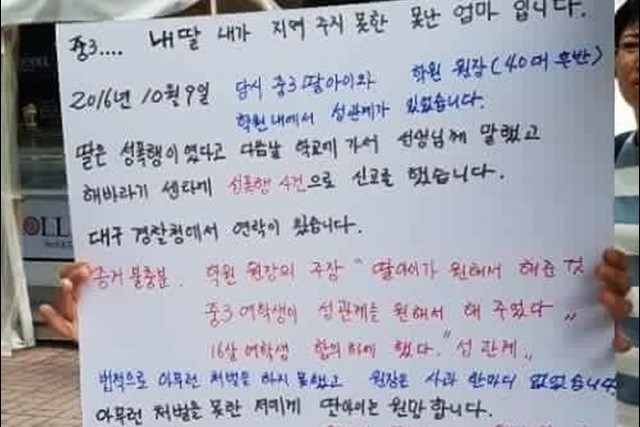 중3.... 내딸 내가 지켜 주지 못한 못난 엄마 입니다.
2016년 10월 9일 당시 중3 딸아이와 학원 원장(40대 후반)
학원내에서 성관계가 있었습니다.
딸은 성폭행이 였다고 다음날 학교에 가서 선생님께 말했고
해바라기 센타에 성폭행 사건으로 신고를 했습니다.
대구 경찰청에서 연락이 왔습니다.
증거 불충분. 학원 원장의 주장 "딸아이가 원해서 해준 것
중3 여학생이 성관계를 원해서 해 주었다"
16살 여학생 합의하에 했다." 성관계"
법적으로 아무런 처벌을 하지 못했고 원장은 사과 한마디 없었습니다
아무런 처벌을 못한 저에게 딸아이는 원망합니다.
OLL